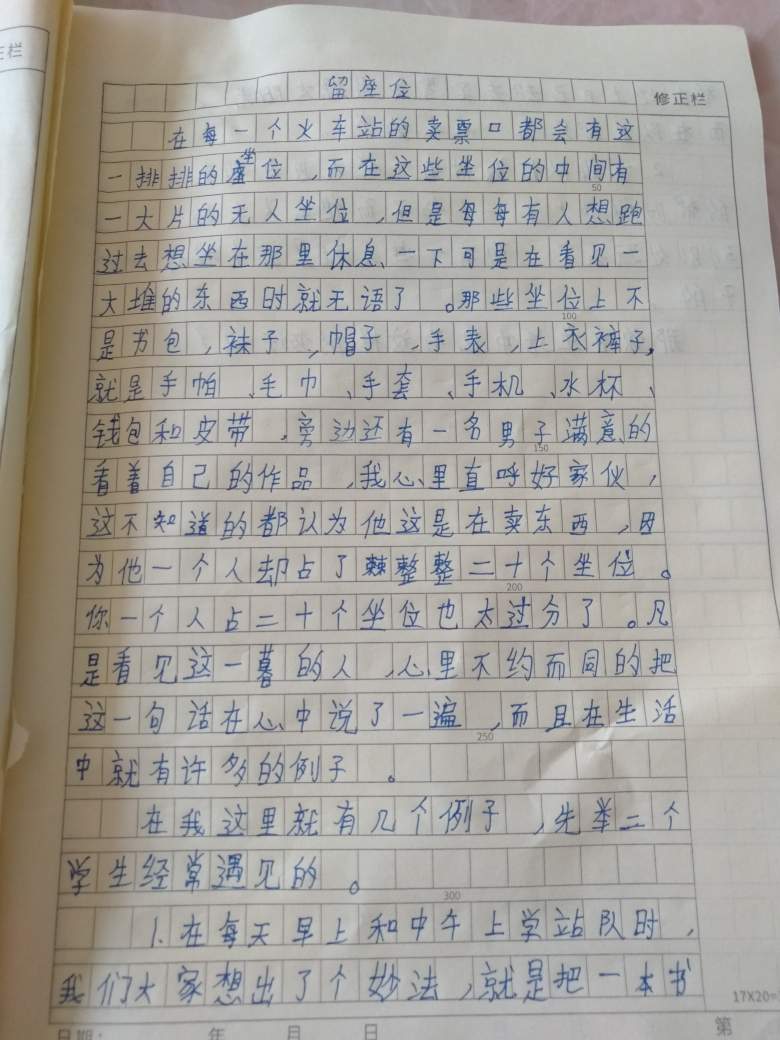 E栏
留座位
修正栏
在每一个火车站的卖票口都会有这
一排排的座坐位，而在这些坐位的中间有
50
一大片的无人坐位，但是每每有人想跑
过去想坐在那里休息、一下可是在看见一
大堆的东西时就无语了。那些坐位上不
100
是书包，袜子，帽子，手表，上衣裤子，
就是手帕、毛巾、手套、手机、水杯、
钱包和皮带，旁边还有一名男子满意的
150
看着自己的作品，我心里直呼好家伙，
这不知道的都认为他这是在卖东西，因
为他一个人却占了整整二十个坐位。
200
你一个人占二十个坐位也太过分了。凡
是看见这一暮的人，心里不约而同的把
这一句话在心中说了一遍，而且在生活
250
中就有许多的例子。
在我这里就有几个例子，先举二个
学生经常遇见的。
300
1.在每天早上和中午上学站队时，
我们大家想出了个妙法，就是把一本书
17X20=
日期： 年 月 日 第